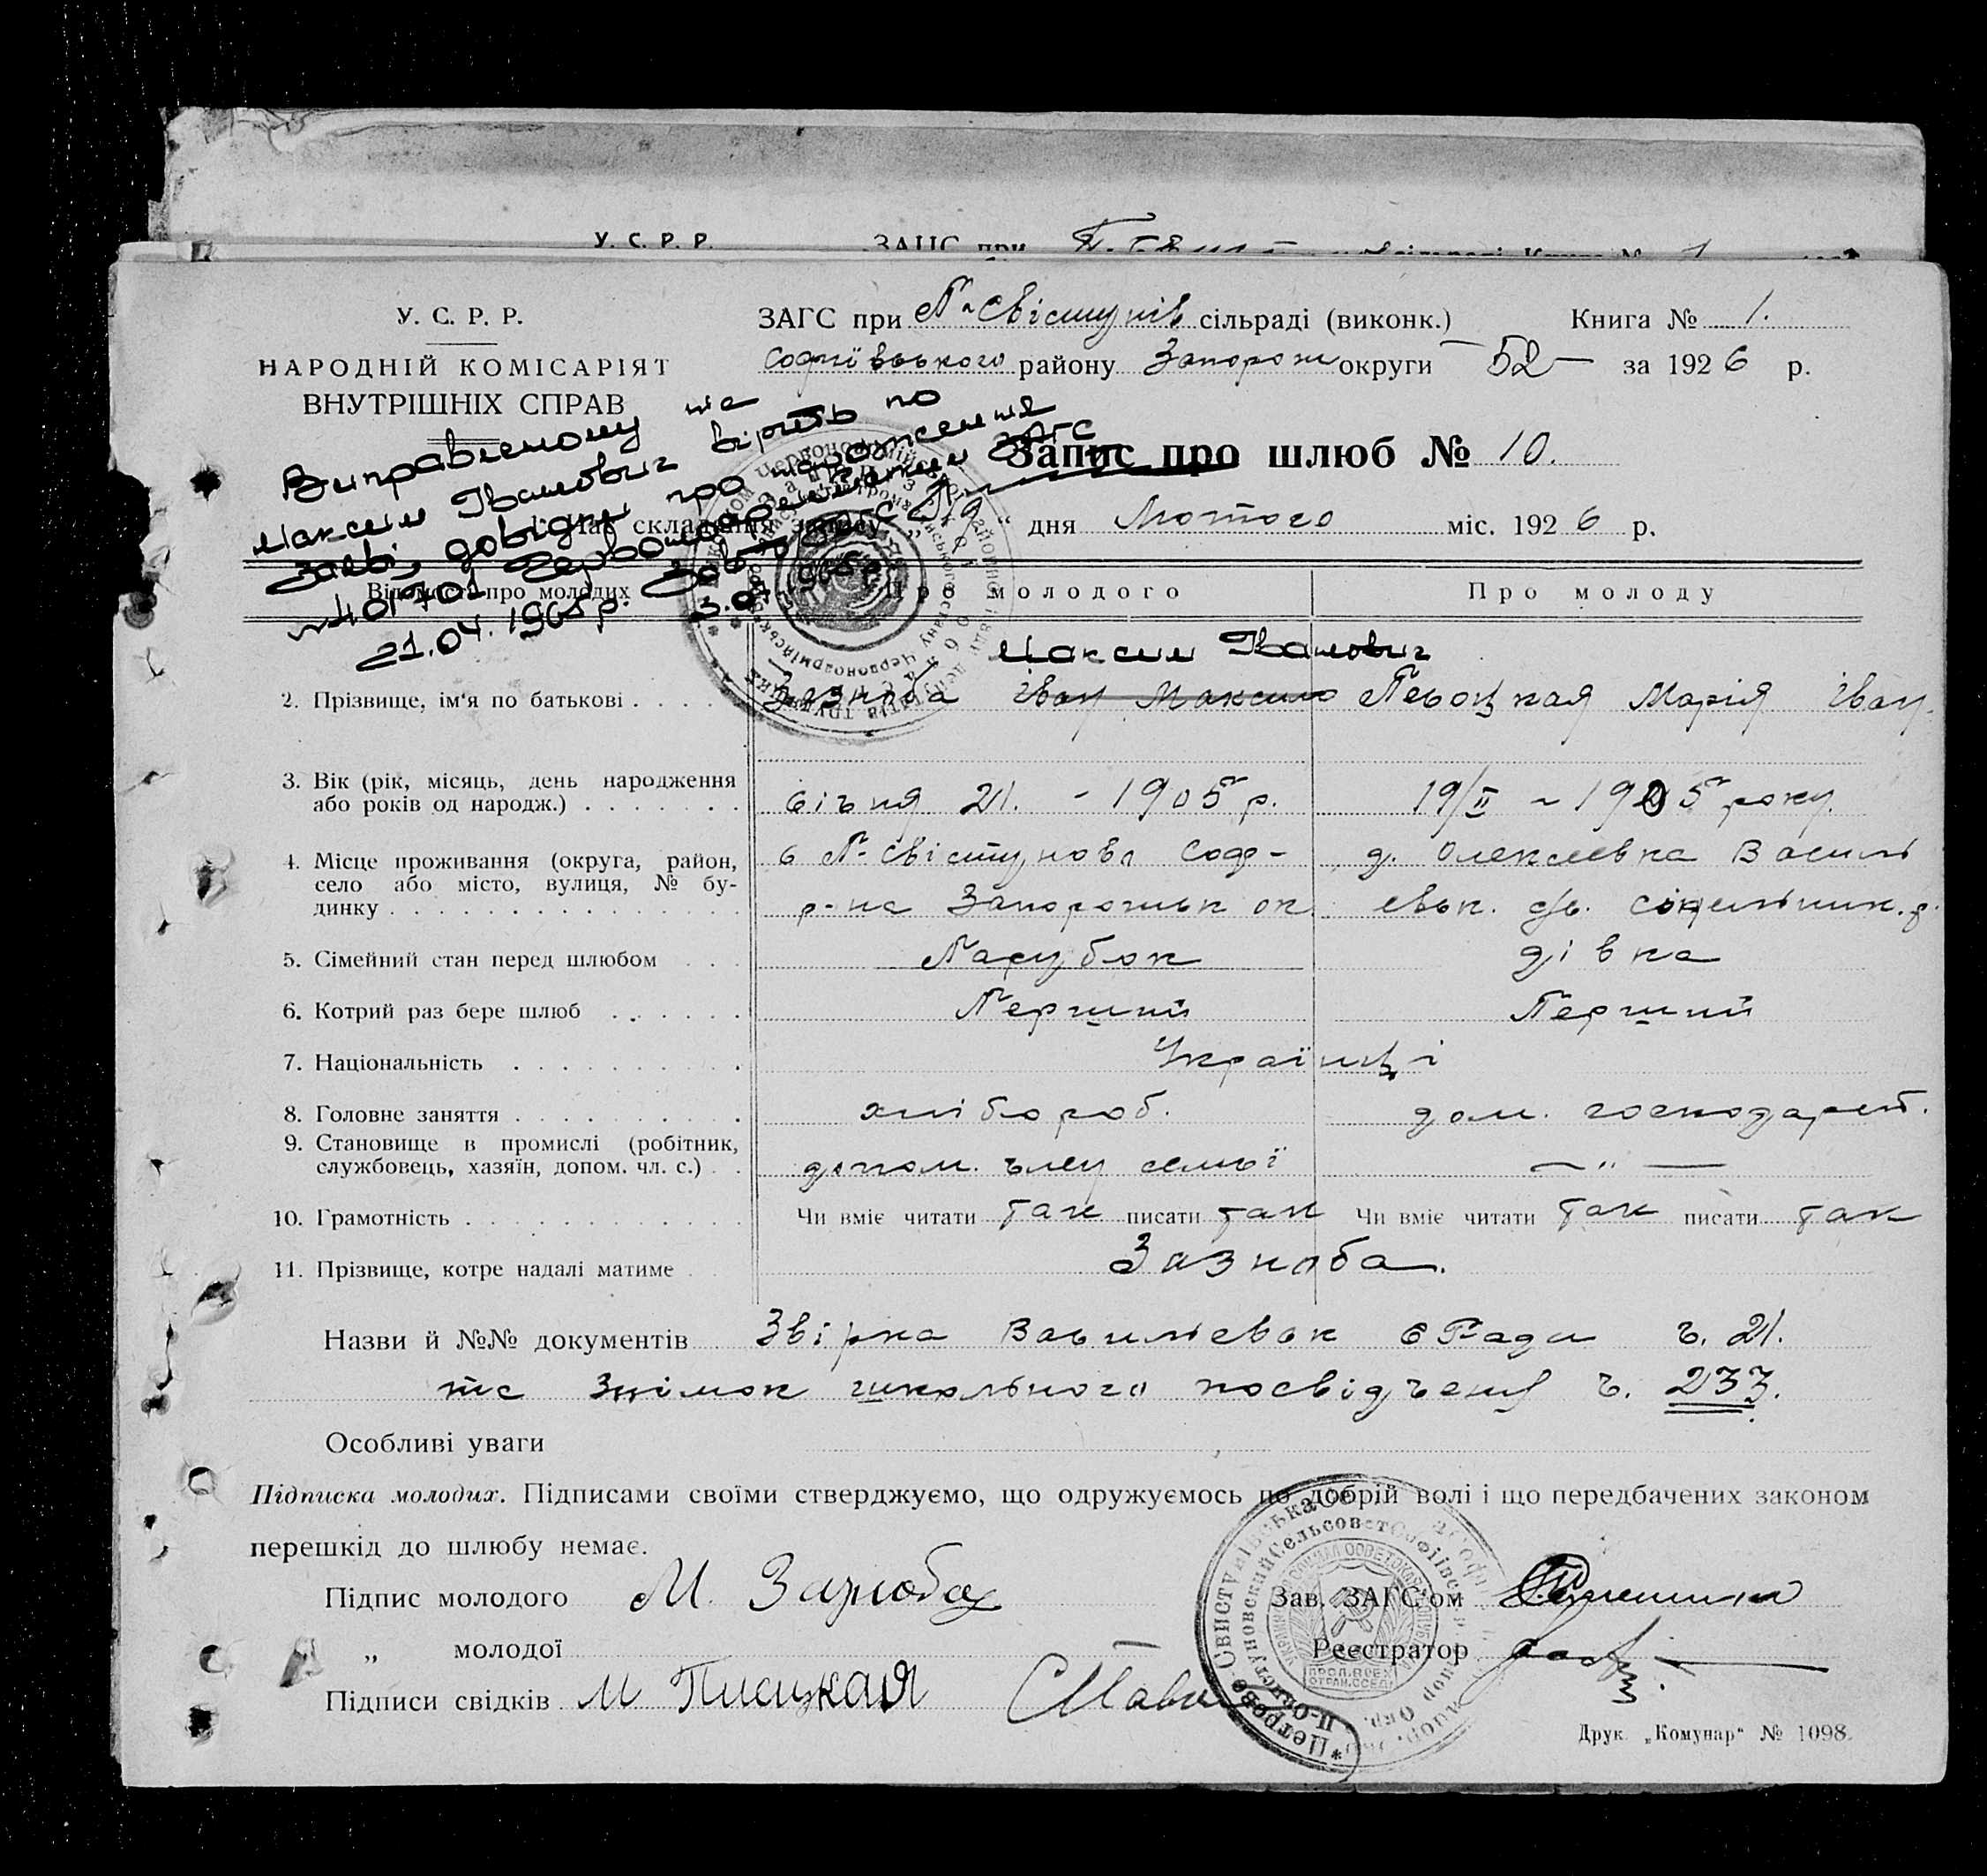 У. С. Р. Р. ЗАГС при
У. С. Р. Р.
НАРОДНІЙ КОМІСАРІЯТ
ВНУТРІШНІХ СПРАВ
ЗАГС при П-Свістунів сільраді (виконк.) Книга № 1.
Софиївського району Запорож округи — 52 — за 1926 р.
Виправленому на
Максим Іванович вірить по
заяві, довідки про народження
№ 401701 Червоноармійськ ЗАГС
21.04.1965р.
Запис про шлюб № 10.
1. Час складання запису „19“ дня Лютого міс. 1926 р.
Відомості про молодих Про молодого Про молоду
Максим Іванович
2. Прізвище, ім'я по батькові Зазноба Іван Максимо Песоцкая Марія Іван.
3. Вік (рік, місяць, день народження
або років од народж.) січня 21. - 1905 р. 19/II ~ 1905 року.
4. Місце проживання (округа, район,
село або місто, вулиця, № бу-
динку
с П-Свістунова Соф-
р-на Запорожськ ок
д. Олексеевка Василь
евськ. с/в. Сінельник. р.
5. Сімейний стан перед шлюбом Парубок дівка
6. Котрий раз бере шлюб Перший Перший
7. Національність Українці
8. Головне заняття хлібороб. дом. господарст.
9. Становище в промислі (робітник,
службовець, хазяїн, допом. чл. с.) допом. члену семьї — " —
10. Грамотність Чи вміє читати так писати так Чи вміє читати так писати так
11. Прізвище, котре надалі матиме Зазноба.
Назви й №№ документів Звірка Васильевськ с Ради ч. 21.
та знімок шкільного посвідчення ч. 233.
Особливі уваги
Підписка молодих. Підписами своїми стверджуємо, що одружуємось по добрій волі і що передбачених законом
перешкід до шлюбу немає.
Підпис молодого М. Зазноба Зав. ЗАГС'ом
„ молодої Реєстратор
Підписи свідків М Писцкая
Друк. „Комунар“ № 1098.